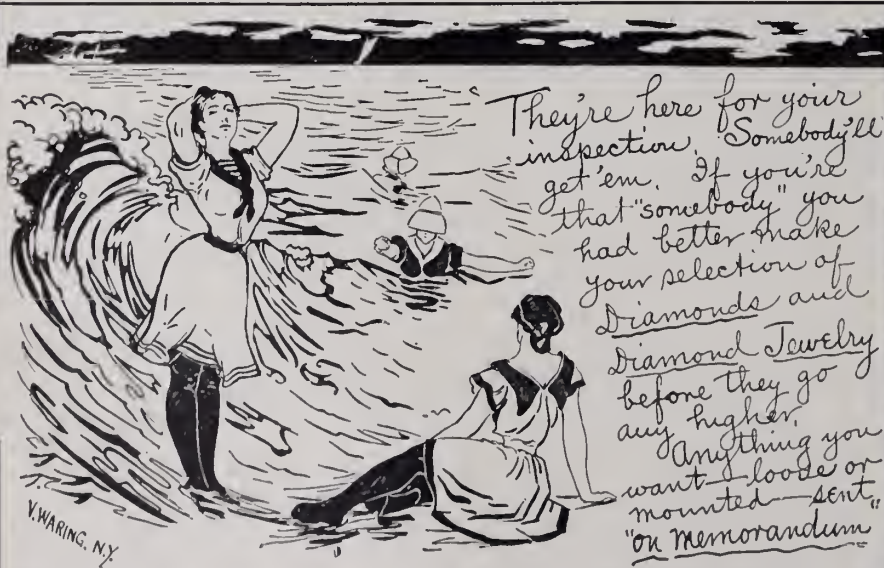 They're here for your
inspection. Somebody'll
get 'em. If you're
that "somebody" you
had better make
your selection of
Diamonds and
Diamond Jewelry
before they go
any higher.
Anything you
want—loose or
mounted—sent
"on memorandum"
V. WARING. N.Y.